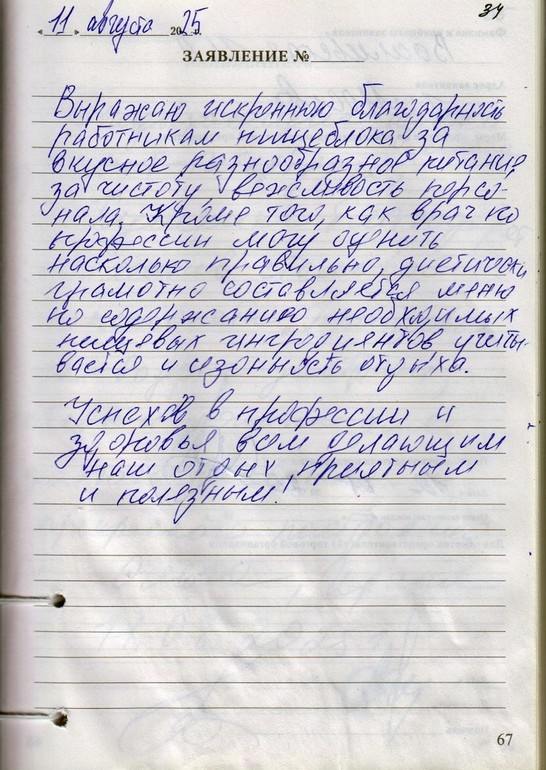 34
« 11 » августа 2025 г.
ЗАЯВЛЕНИЕ №
Выражаю искреннюю благодарность
работникам пищеблока за
вкусное разнообразное питание,
за чистоту вежливость персо-
нала. Кроме того, как врач по
профессии могу оценить
насколько правильно, диетически
грамотно составляется меню
по содержанию необходимых
пищевых ингредиентов учиты-
вается и сезонность отдыха.
Успехов в профессии и
здоровья вам делающим
наш отдых приятным
и полезным!
67